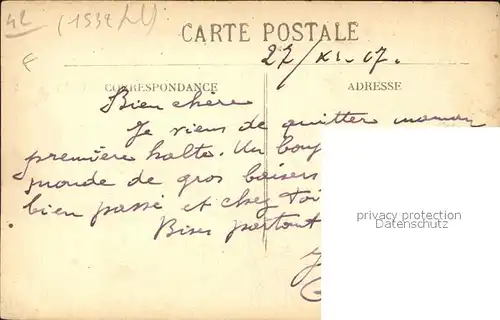 42 (1534
CARTE POSTALE
27/XI-07.
CORRESPONDANCE
ADRESSE
Bien chère
Je viens de quitter maman
première halte. Un bon
monde de gros baisers
bien passé et chez toi
Bises partout
privacy protection
Datenschutz